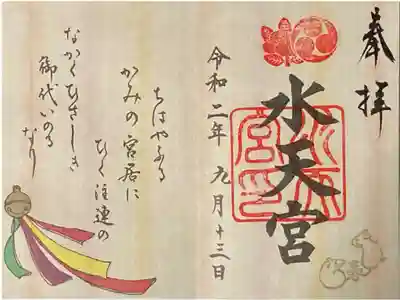 奉拝
水天宮
令和二年九月十三日
ちはやふる
かみの宮居に
ひく注連の
なかくひさしき
御代いのる
なり